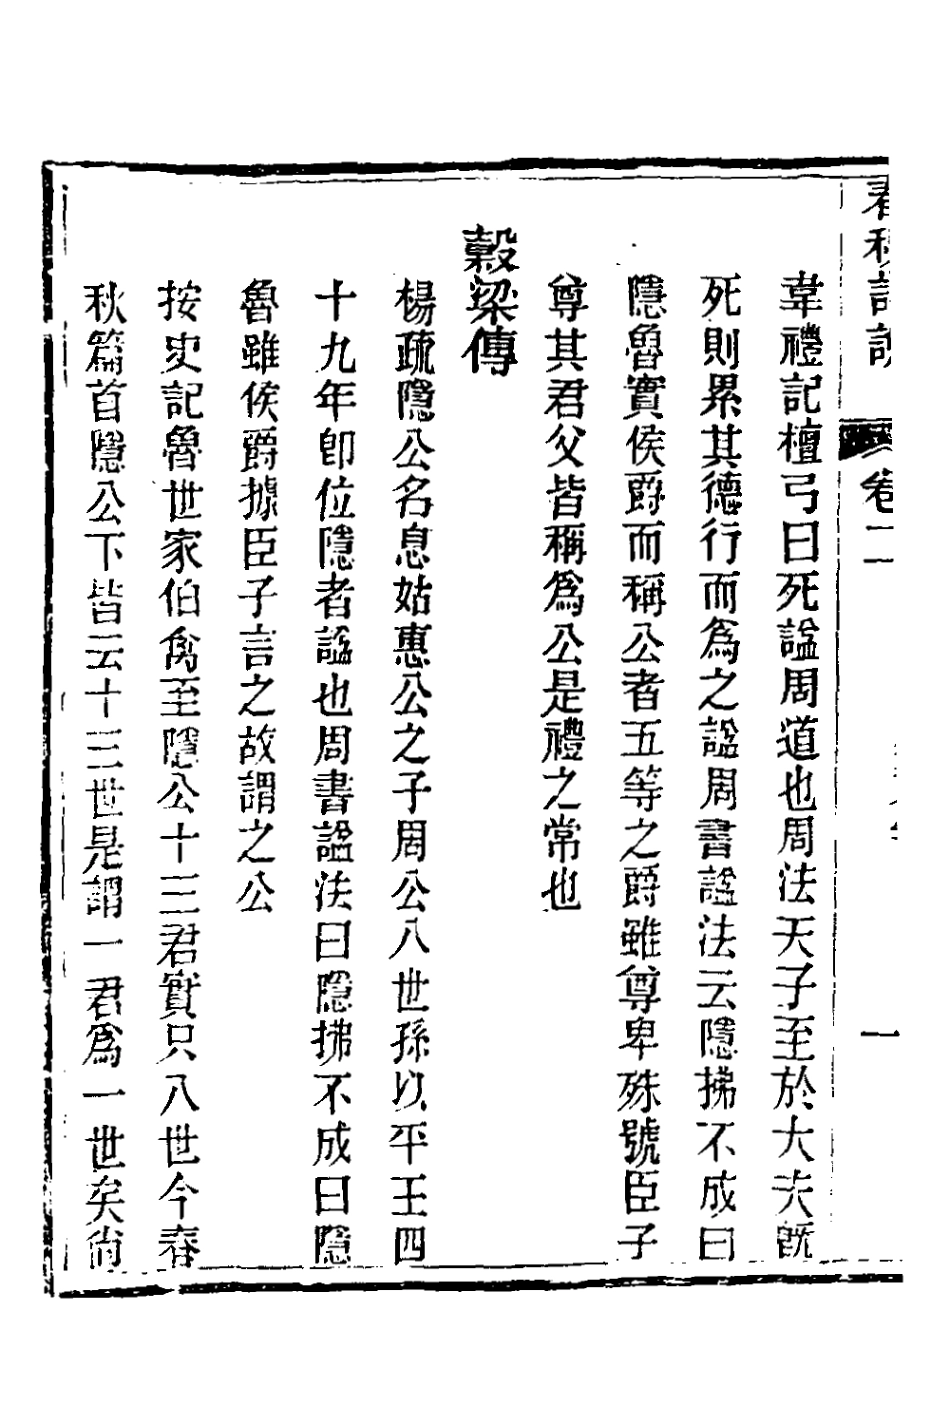 卷二
一
韋禮記檀弓曰死謚周道也周法天子至於大夫旣
死則累其德行而爲之謚周書謚法云隱拂不成曰
隱魯實侯爵而稱公者五等之爵雖尊卑殊號臣子
尊其君父皆稱爲公是禮之常也
穀梁傳
楊疏隱公名息姑惠公之子周公八世孫以平王四
十九年卽位隱者謚也周書謚法曰隱拂不成曰隱
魯雖侯爵據臣子言之故謂之公
按史記魯世家伯禽至隱公十三君實只八世今春
秋篇首隱公下皆云十三世是謂一君爲一世矣尙